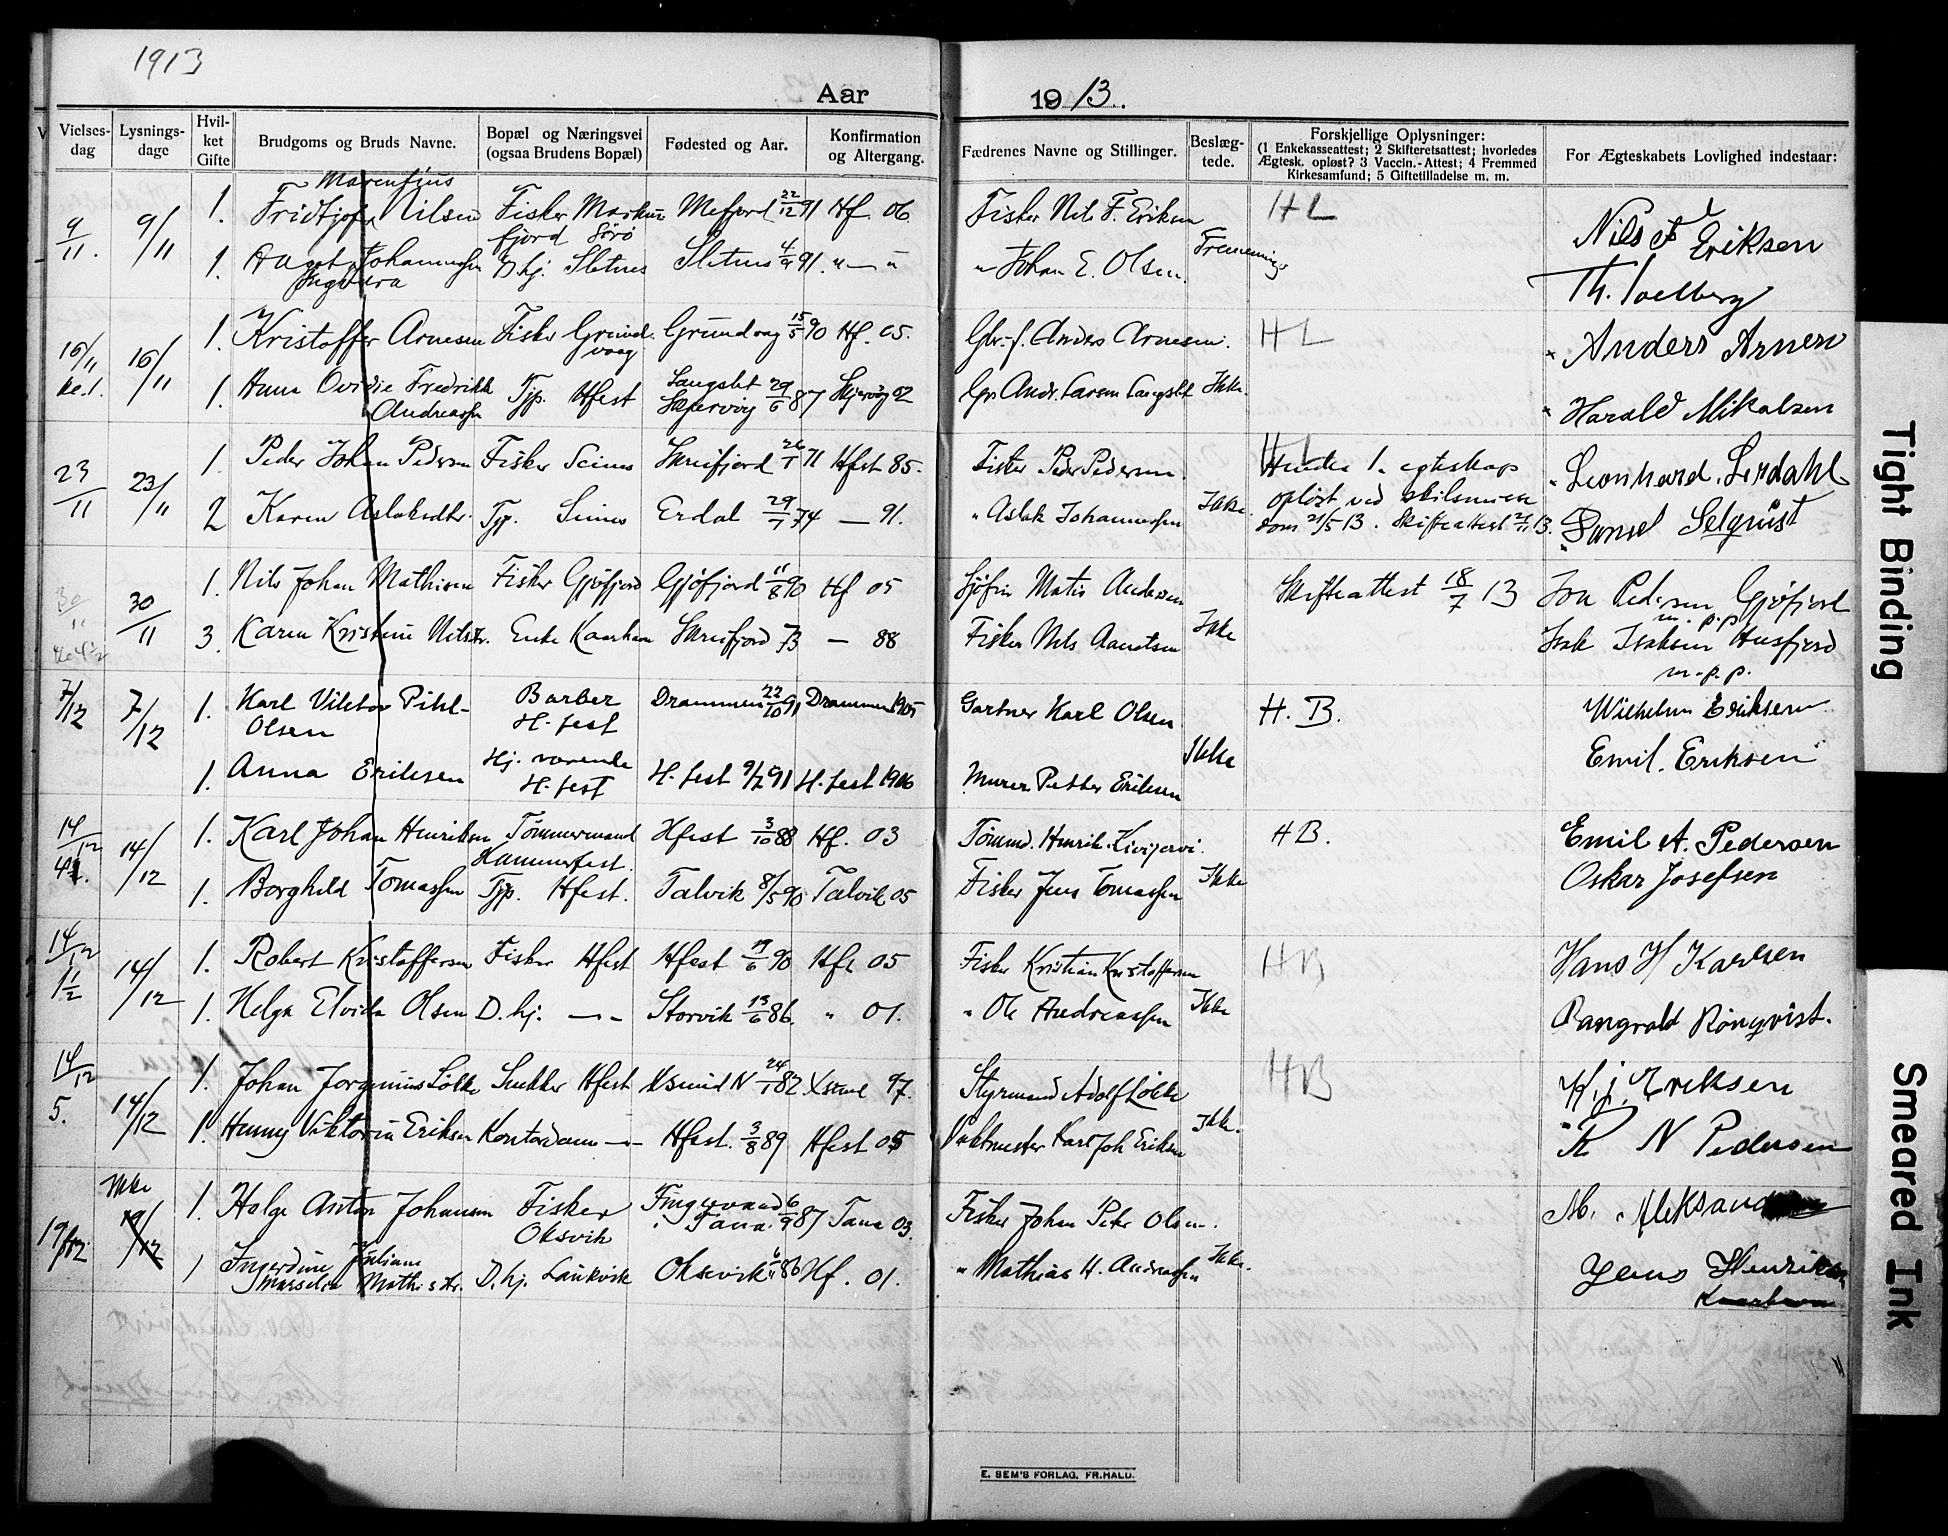 1913
Aar
1913.
Vielses-dag
Lysnings-dage
Hvil-ket Gifte
Brudgoms og Bruds Navne.
Bopæl og Næringsvei (ogsaa Brudens Bopæl)
Fødested og Aar.
Konfirmation og Altergang.
Fædrenes Navne og Stillinger.
Beslæg-tede.
Forskjellige Oplysninger:
(1 Enkekasseattest; 2 Skifteretsattest; hvorledes
Ægtesk. opløst? 3 Vaccin.-Attest; 4 Fremmed
Kirkesamfund; 5 Giftetilladelse m. m.
For Ægteskabets Lovlighed indestaar:
9/11. 9/11 1. Fridtjof Marenfius Nilsen Fisker Markusfjord Sørø Mefjord 22/12 91 Hf. 06 Fisker Nils F. Eriksen HL Nils F Eriksen
1. Johannessen D.hj. Sletnes Sletnes 4/9 91. " — " " Johan E. Olsen. Th.
16/11 16/11 1. Kristoffer Arnesen Fisker Grundvaag Grundvaag 15/5 90 Hf. 05. Gbr.f. Anders Arnesen. HL Anders Arnen
1. Hanna Ovidie Fredrikke Andreassen Tjp. Hfest Langslet Skjervøy 29/6 87 Skjervøy 02 Andr. Larsen Langslet Ikke. Harald Mikalsen
23/11 23/11 1. Peder Johan Pedersen Fisker Seines Skreifjord 26/1 71 Hfest 85. Fisker Peder Pedersen. HL Hendes 1. egteskap Leonhard. Lerdahl
2 Karen Aslaksdtr. Tjp. Seines Erdal 29/7 74 — 91. " Aslak Johannessen Ikke. opløst ved skilsmisse
som 21/5 13. Skifteattest 13. Selqvist
30/11 30/11 1. Nils Johan Mathisen Fisker Gjøfjord Gjøfjord 11/8 90 Hf 05 Matis Andersen Skifteattest 18/7 13 Pedersen Gjøfjord
m. p. p
3. Karen Kristine Nilsdtr. Enke Kaarhavn Skreifjord 73 — 88 Fisker Nils Aanetsen Ikke Isak Isaksen Husfjord
m. p. p.
7/12 7/12 1. Karl Viktor Pihl-Olsen Barber H. fest Drammen 22/10 91 Drammen 1905 Gartner Karl Olsen H. B. Wilhelm Eriksen
1. Anna Eriksen Hj. værende H. fest H. fest 9/2 91 H. fest 1906 Murer Petter Eriksen Ikke Emil. Eriksen
14/12 14/12 1. Karl Johan Henriksen Tømmermand Hammerfest. Hfest 3/10 88 Hf. 03 Tømmd. Henrik Kivijervi. HB. Emil A. Pedersen
1. Borghild Tomassen Tjp. Hfest. Talvik 8/5 90 Talvik 05 Fisker Jens Tomassen Ikke Oskar Josefsen
14/12 1½ 14/12 1. Robert Kristoffersen Fisker Hfest Hfest 19/6 90 Hf 05 Fisker Kristian Kristoffersen HB Hans H Karlsen
1. Helga Elvida Olsen D. hj. — " — Storvik 13/6 86. " 01. " Ole Andreassen Ikke Rangvald Rönqvist.
14/12 5. 14/12 1. Johan Jorginius Løkke Snekker Hfest Ksund N 24/1 82 Xsund 97. Styrmand Adolf Løkke HB H. j. Eriksen
1. Henny Viktoria Eriksen Kontordame — " — Hfest. 3/8 89 Hfest 05 Vaktmester Karl Joh Eriksen Ikke. K N Pedersen
19/12. Ikke 19/12 1. Helge Anton Johansen Fisker Oksvik Fingervand Tana 6/9 87 Tana 03. Fisker Johan Peter Olsen. M. Aleksand
1 Ingerdine Juliane Marselie Mathisdtr. D. hj. Laukvik Oksevik 86 Hf. 01. " Mathias H. Andreassen Ikke. Jens Henriksen
E. SEM'S FORLAG, FR.HALD.
Tight Binding
Smeared Ink